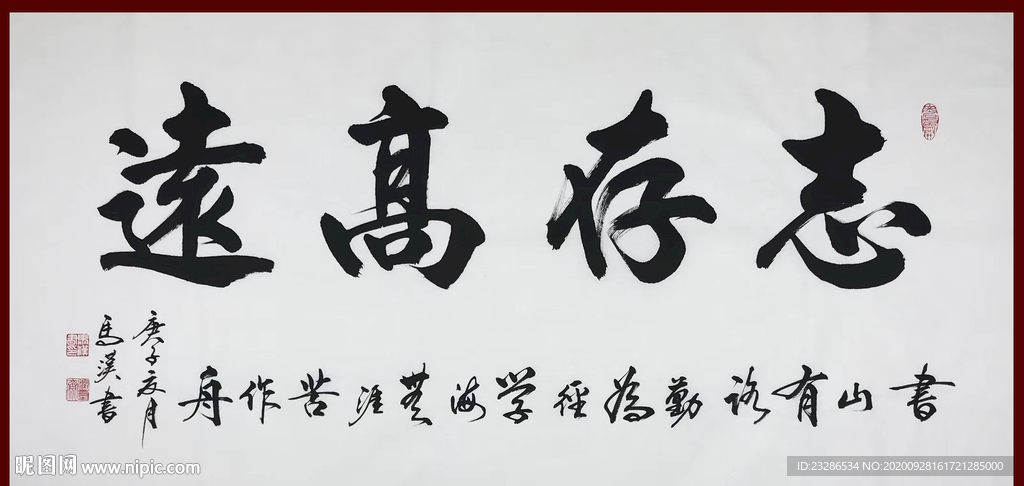 志存高遠
書山有路勤為徑学海無涯苦作舟
庚子夏月
馬漢書
昵图网 www.nipic.com
ID:23286534 NO:20200928161721285000